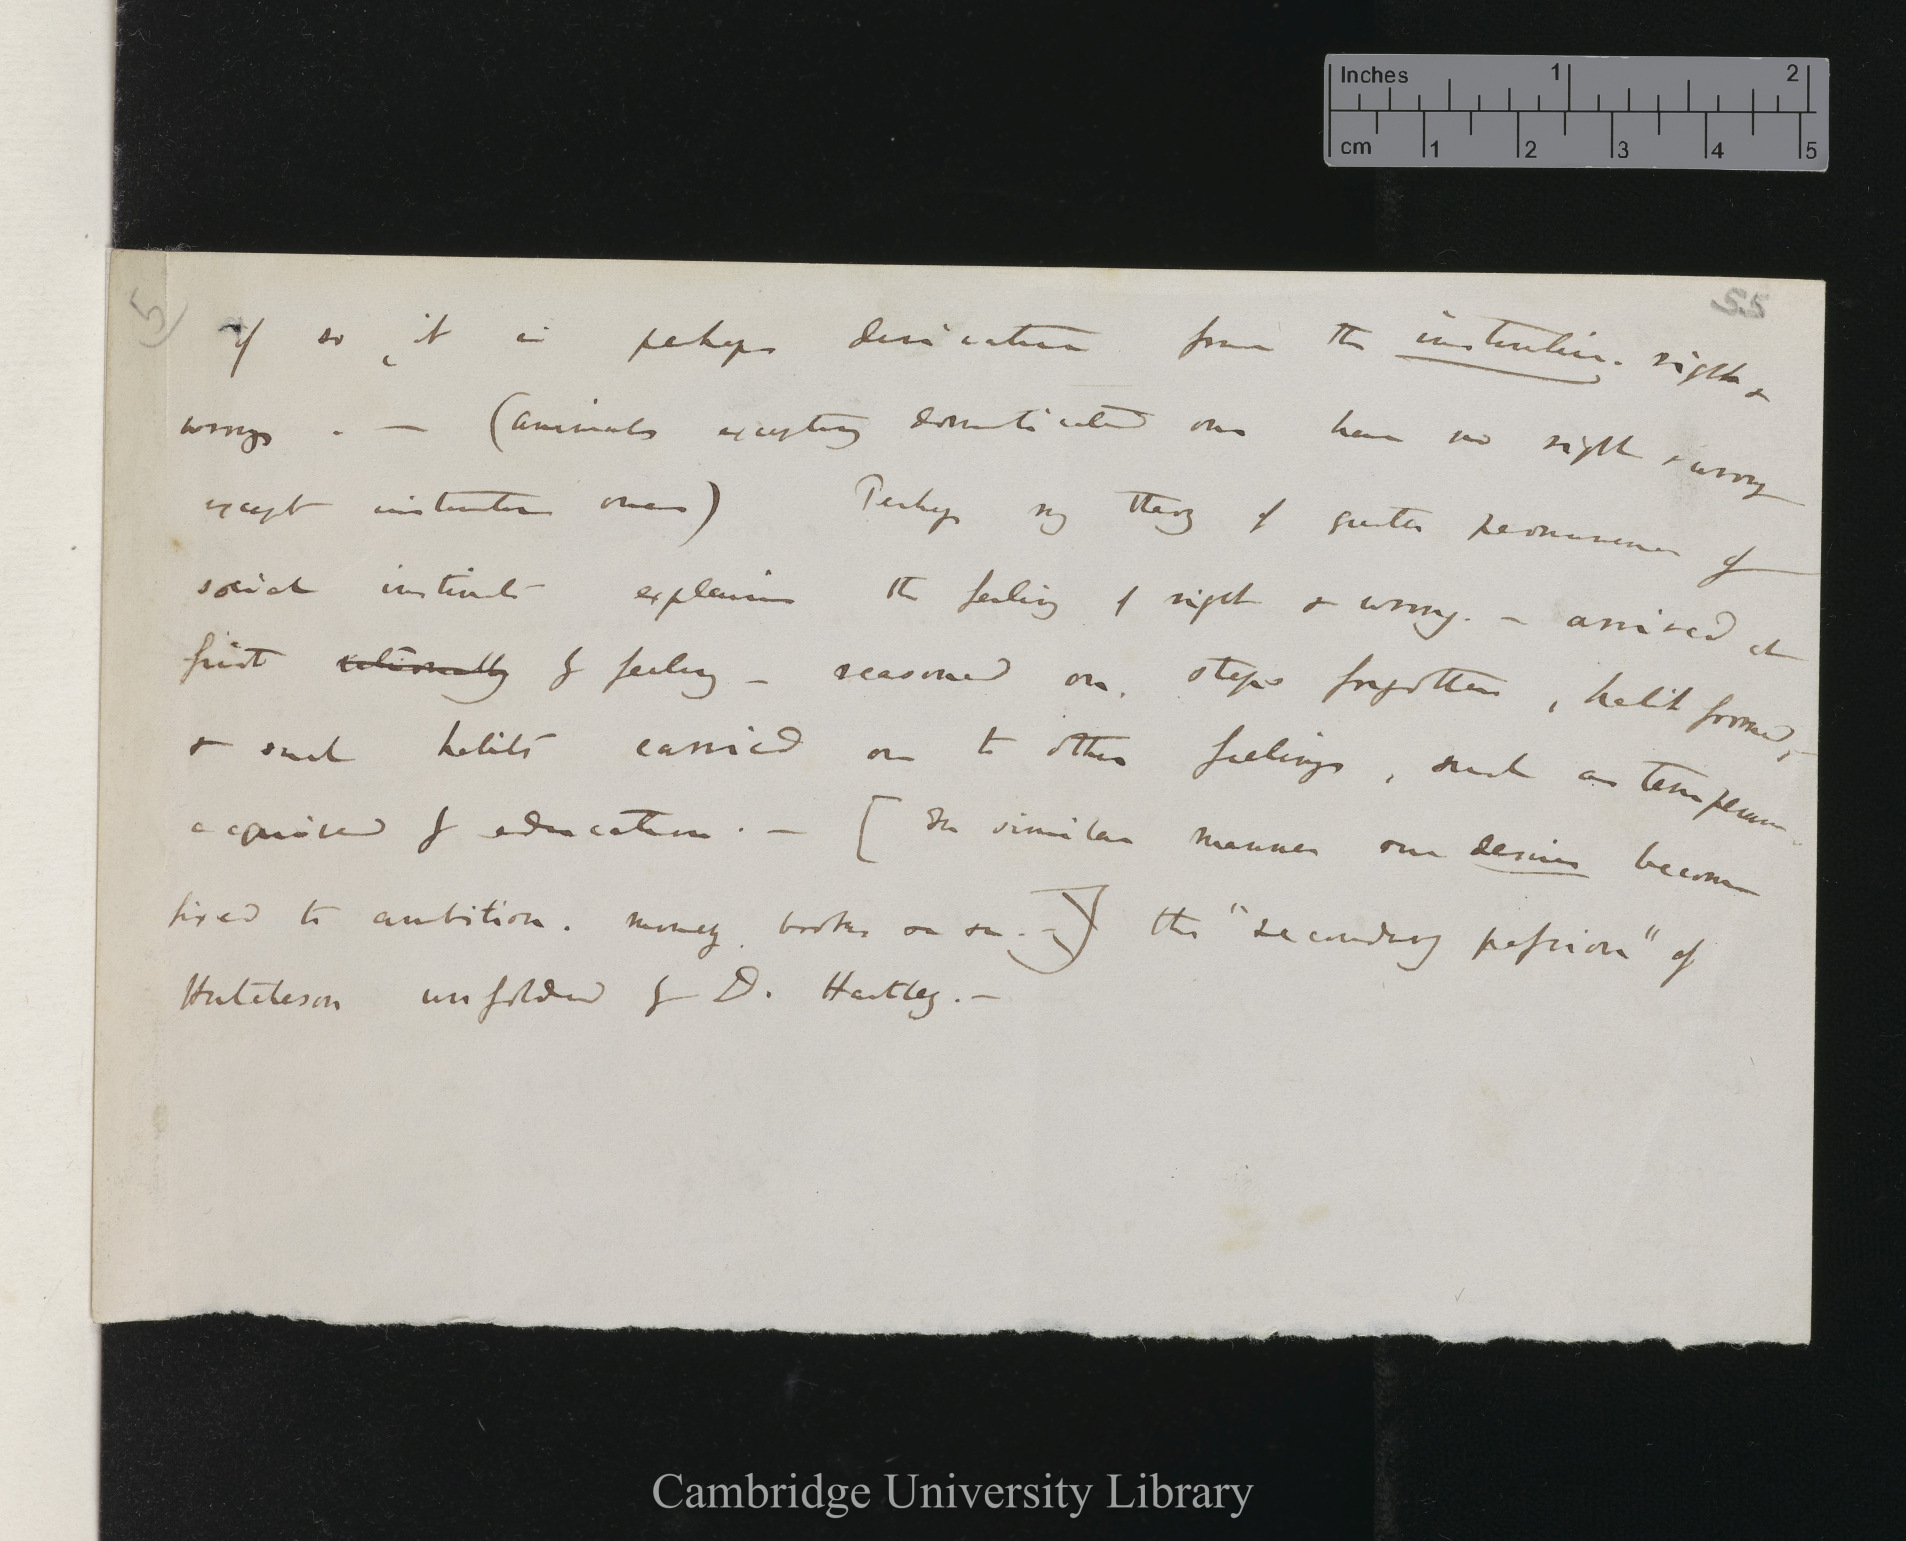 Inches 1 2
cm 1 2 3 4 5
5)
55
If so, it is perhaps derivation from the instinctive. right &
wrong . — (animals excepting domesticated ones have no right & wrong
except instinctive ones) Perhaps my theory of greater permanence of
social instincts explains the feeling of right & wrong. — arrived at
first rationally by feeling — reasoned on, steps forgotten, habit formed, —
& such habits carried on to other feelings, such as temperance
acquired by education. — [In similar manner our desires become
fixed to ambition. money, books &c &c. —] the "secondary passion" of
Hutcheson unfolded by D. Hartley. —
Cambridge University Library